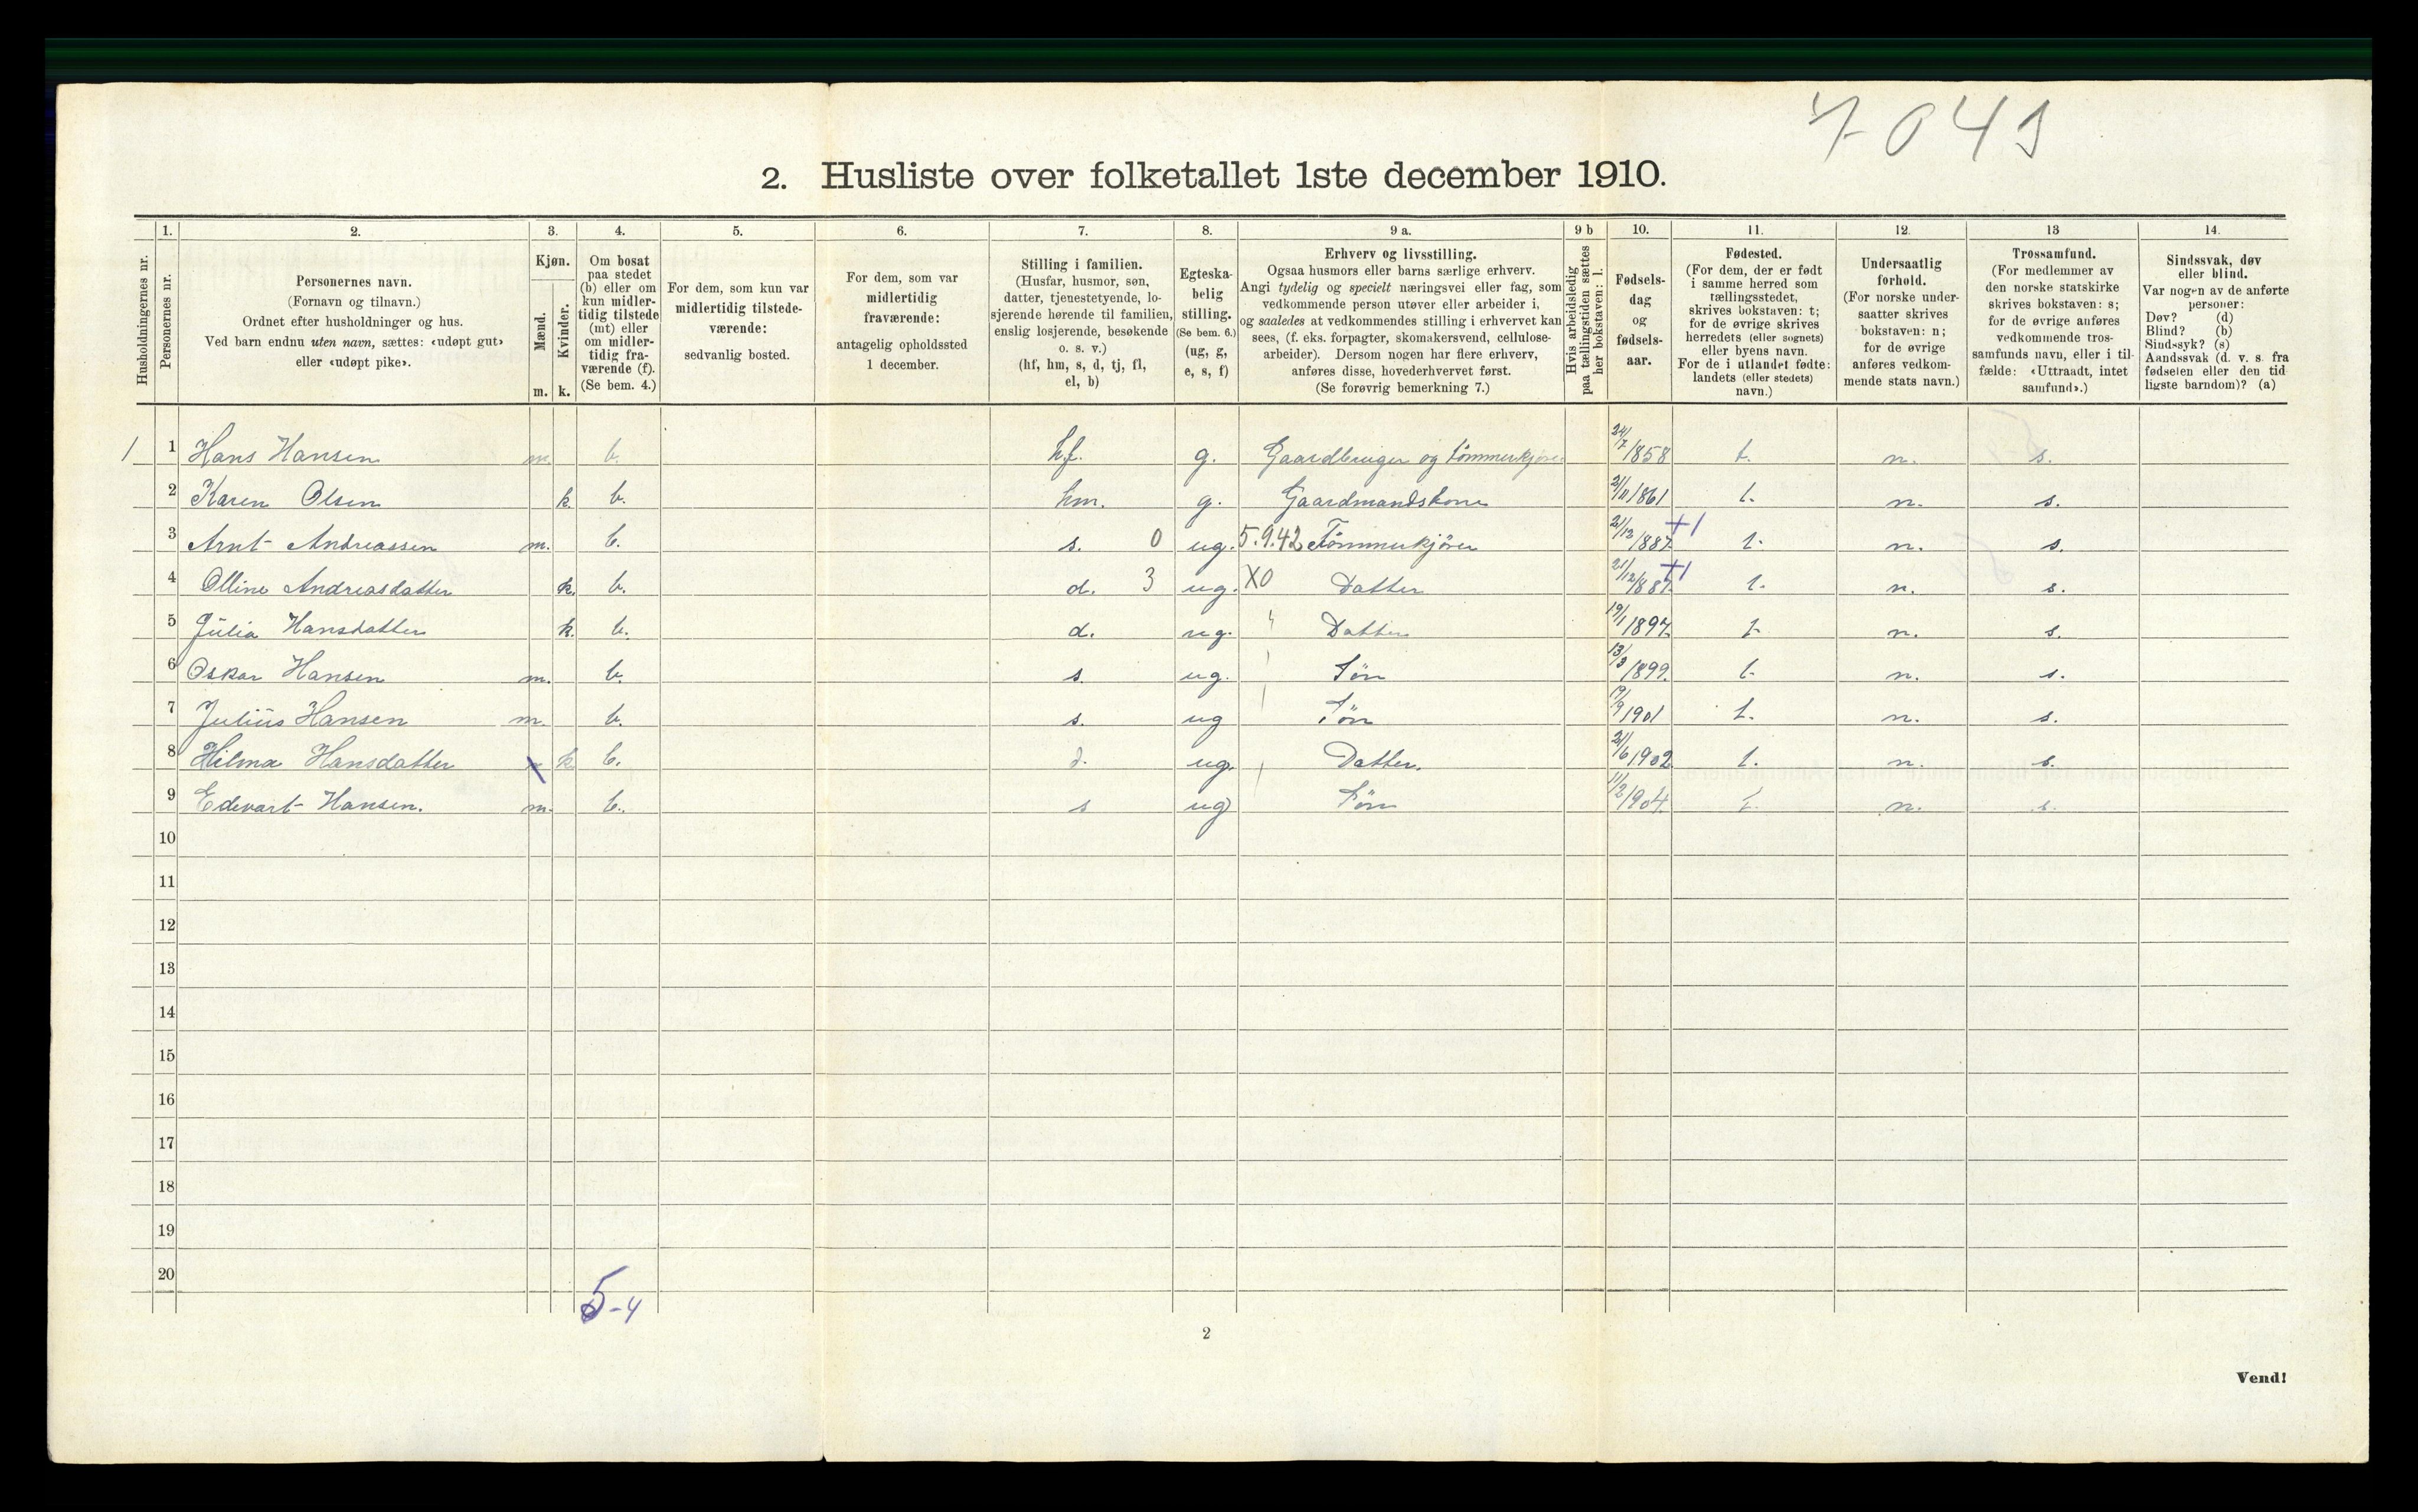 7043
2. Husliste over folketallet 1ste december 1910.
1. 2. 3. 4. 5. 6. 7. 8. 9 a. 9 b 10. 11. 12. 13 14.
Husholdningernes nr.
Personernes nr.
Personernes navn.
(Fornavn og tilnavn.)
Ordnet efter husholdninger og hus.
Ved barn endnu uten navn, sættes: «udøpt gut»
eller «udøpt pike».
Kjøn.
Mænd.
Kvinder.
m. k.
Om bosat
paa stedet
(b) eller om
kun midler-
tidig tilstede
(mt) eller
om midler-
tidig fra-
værende (f).
(Se bem. 4.)
For dem, som kun var
midlertidig tilstede-
værende:
sedvanlig bosted.
For dem, som var
midlertidig
fraværende:
antagelig opholdssted
1 december.
Stilling i familien.
(Husfar, husmor, søn,
datter, tjenestetyende, lo-
sjerende hørende til familien,
enslig losjerende, besøkende
o. s. v.)
(hf, hm, s, d, tj, fl,
el, b)
Egteska-
belig
stilling.
(Se bem. 6.)
(ug, g,
e, s, f)
Erhverv og livsstilling.
Ogsaa husmors eller barns særlige erhverv.
Angi tydelig og specielt næringsvei eller fag, som
vedkommende person utøver eller arbeider i,
og saaledes at vedkommendes stilling i erhvervet kan
sees, (f. eks. forpagter, skomakersvend, cellulose-
arbeider). Dersom nogen har flere erhverv,
anføres disse, hovederhvervet først.
(Se forøvrig bemerkning 7.)
Hvis arbeidsledig
paa tællingstiden sættes
her bokstaven: l.
Fødsels-
dag
og
fødsels-
aar.
Fødested.
(For dem, der er født
i samme herred som
tællingsstedet,
skrives bokstaven: t;
for de øvrige skrives
herredets (eller sognets)
eller byens navn.
For de i utlandet fødte:
landets (eller stedets)
navn.)
Undersaatlig
forhold.
(For norske under-
saatter skrives
bokstaven: n;
for de øvrige
anføres vedkom-
mende stats navn.)
Trossamfund.
(For medlemmer av
den norske statskirke
skrives bokstaven: s;
for de øvrige anføres
vedkommende tros-
samfunds navn, eller i til-
fælde: «Uttraadt, intet
samfund».)
Sindssvak, døv
eller blind.
Var nogen av de anførte
personer:
Døv? (d)
Blind? (b)
Sindssyk? (s)
Aandssvak (d. v. s. fra
fødselen eller den tid
ligste barndom)? (a)
1 1 Hans Hansen m. b. hf. g. Gaardbruger og tömmerkjörer 24/7 1858 t. n. s.
2 Karen Olsen k. b. hm. g. Gaardmandskone 2/11 1861 t. n. s.
3 Arnt Andreassen m. b. s. 0 ug. 5.9.42 Tömmerkjörer 21/12 1887 +1 t. n. s.
4 Olline Andreasdatter k. b. d. 3 ug. X0 Datter 21/12 1887 +1 t. n. s.
5 Julia Hansdatter k. b. d. ug. Datter 19/1 1897 t. n. s.
6 Oskar Hansen m. b. s. ug. Sön 13/3 1899. t. n. s.
7 Julius Hansen m. b. s. ug Sön 19/9 1901 t. n. s.
8 Hilma Hansdatter k b. d. ug. Datter. 21/6 1902 t. n. s.
9 Edevart Hansen. m. b. s ug Sön 11/2 1904. t. n. s.
10
11
12
13
14
15
16
17
18
19
20
5-4
2
Vend!